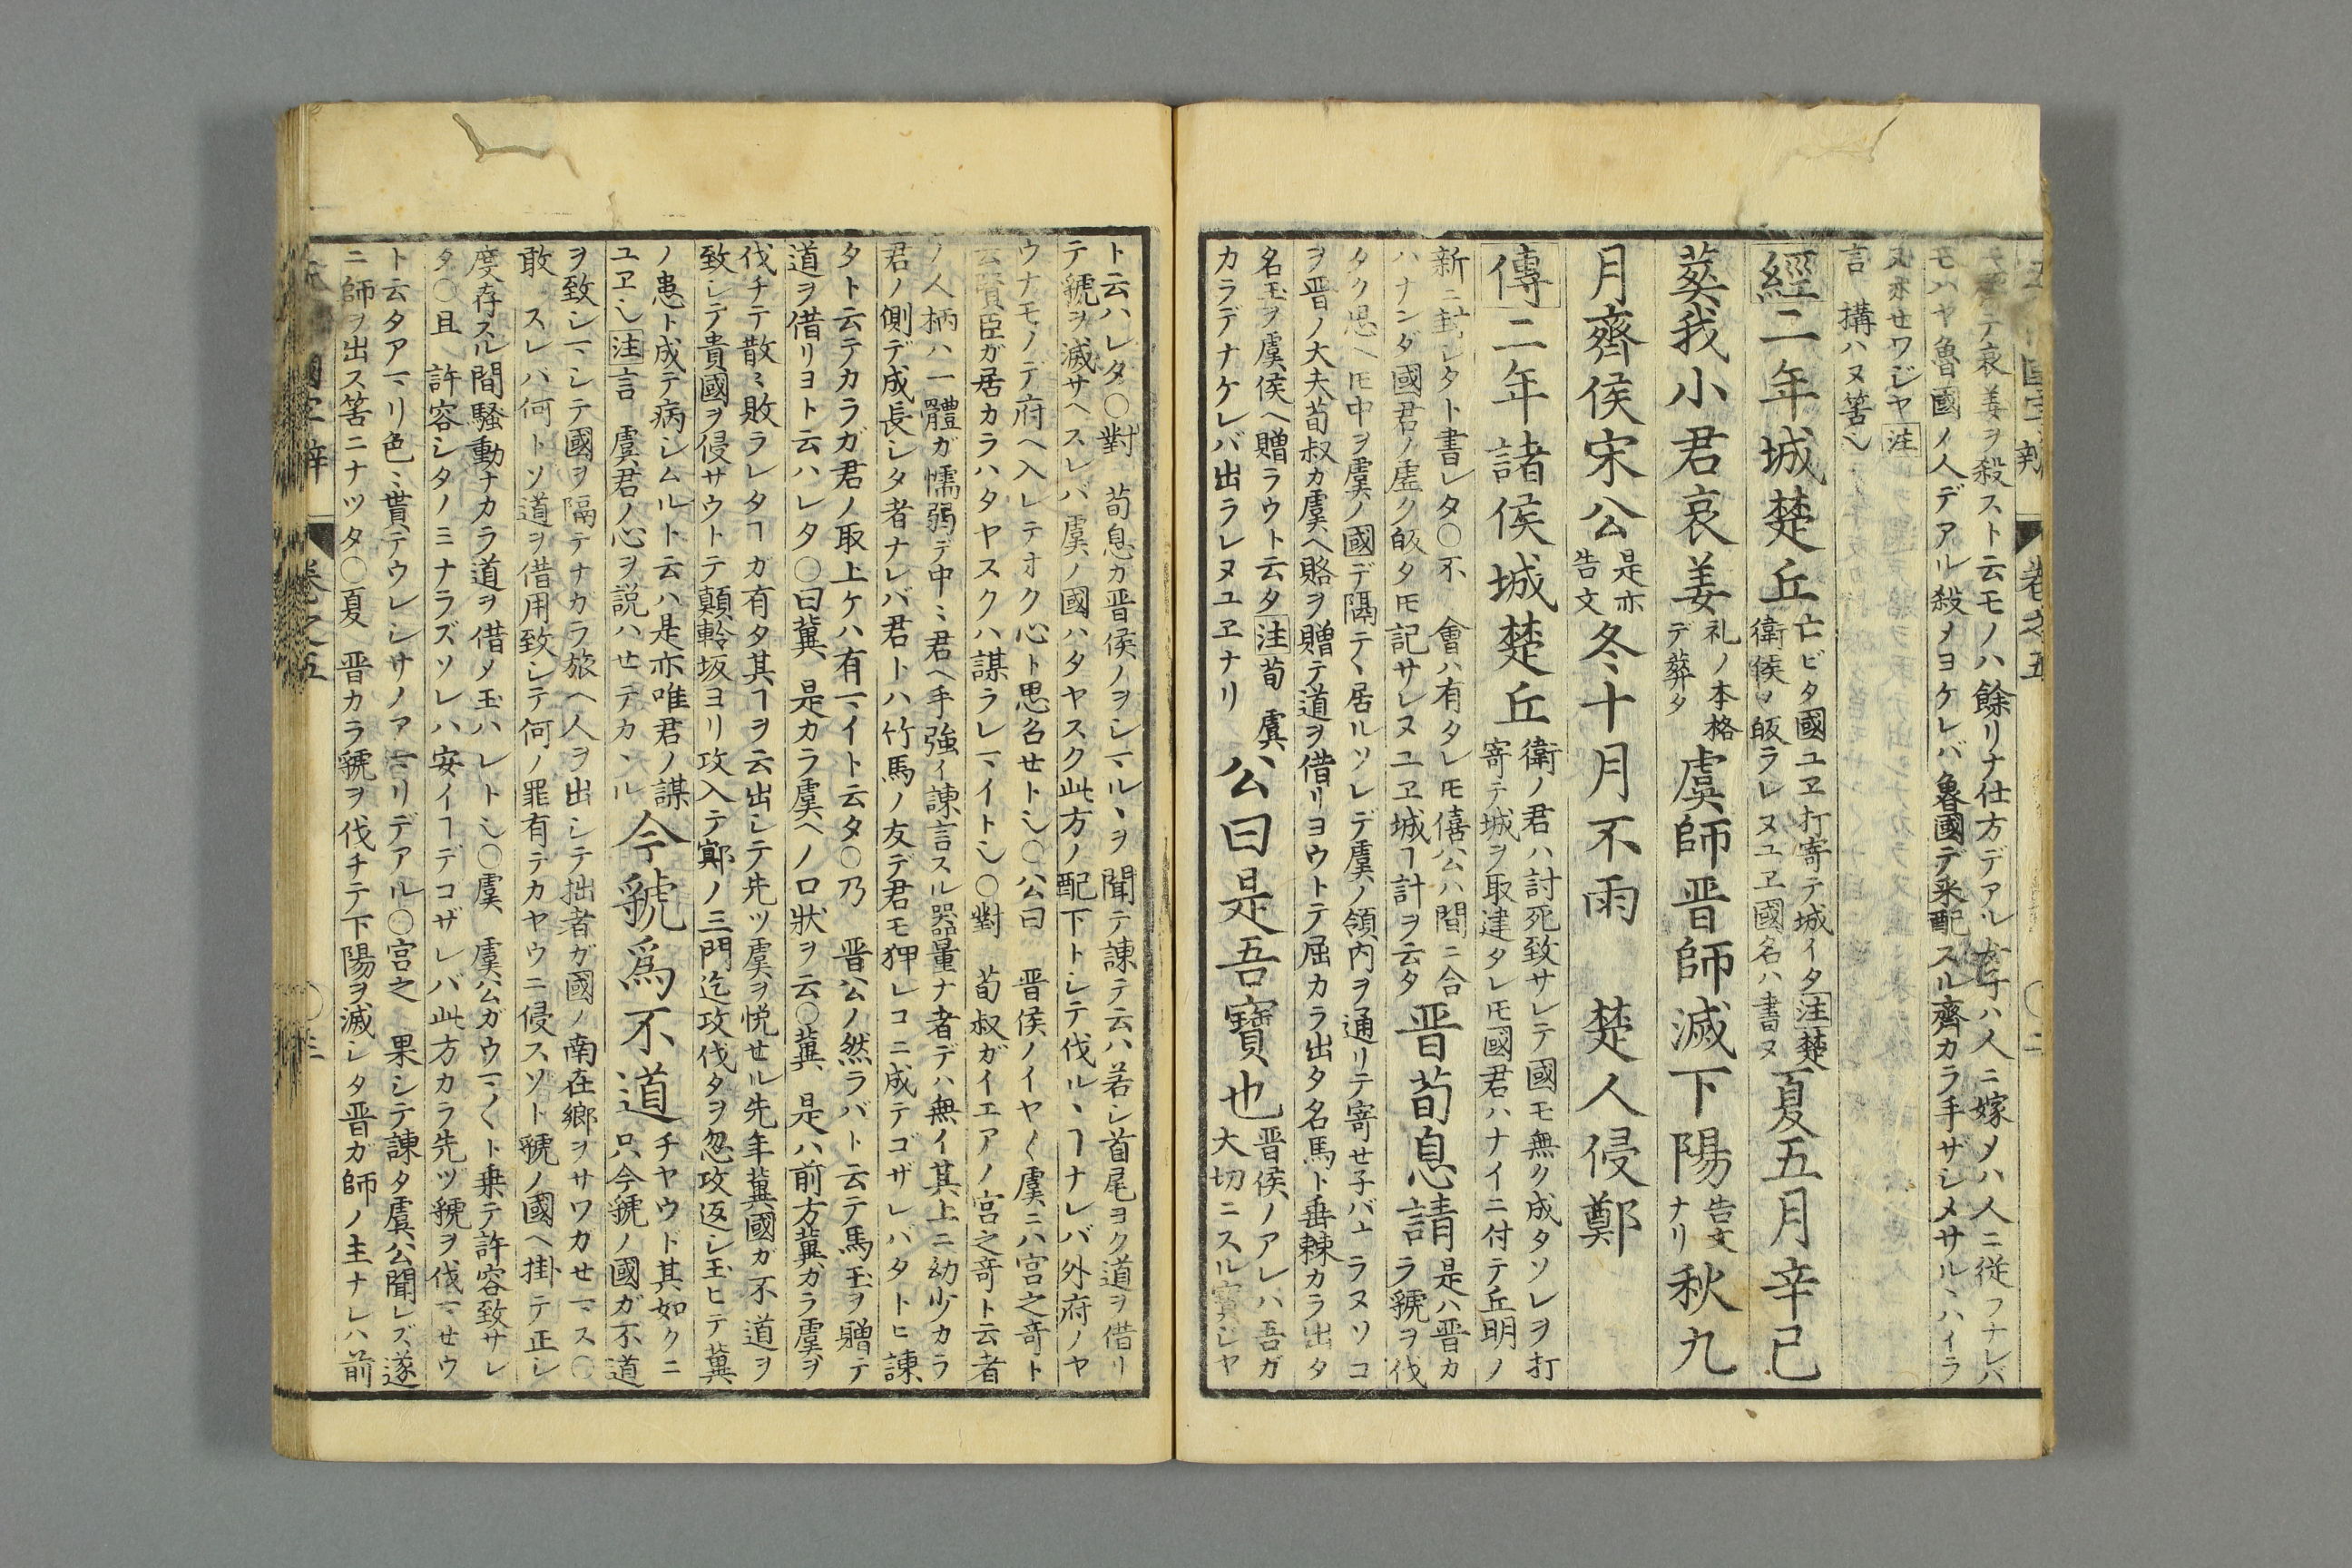 哀姜ヲ殺スト云モノハ餘リナ仕方デアル女子ハ人ニ嫁メハ人ニ従フナレバ
モハヤ魯國ノ人デアル殺メヨケレバ魯國デ采配スル齊カラ手ザシメサルヽハイラ
ヌ世ワジヤ注
言 搆ハヌ筈乄
經二年城楚丘
亡ビタ國ユヱ打寄テ城イタ注楚
衛侯ヲ皈ラレヌユヱ國名ハ書ヌ
夏五月辛巳
葬我小君哀姜
礼ノ本格
デ葬タ
虞師晋師滅下陽
告文
ナリ
秋九
月齊侯宋公
是亦
告文
冬十月不雨 楚人侵鄭
傳二年諸侯城楚丘
衛ノ君ハ討死致サレテ國モ無ク成タソレヲ打
寄テ城ヲ取建タレ𪜈國君ハナイニ付テ丘明ノ
新ニ封レタト書レタ○不 會ハ有タレ𪜈僖公ハ間ニ合
ハナンダ國君ノ虚ク皈タ𪜈記サレヌユヱ城ヿ計ヲ云タ
晋荀息請
是ハ晋カ
ラ虢ヲ伐
タク思ヘ𪜈中ヲ虞ノ國デ隔テヽ居ルソレデ虞ノ領内ヲ通リテ寄せ子バナラヌソコ
ヲ晋ノ大夫荀叔カ虞ヘ賂ヲ贈テ道ヲ借リヨウトテ屈カラ出タ名馬ト垂棘カラ出タ
名玉ヲ虞侯ヘ贈ラウト云タ注荀 虞
カラデナケレバ出ラレヌユヱナリ
公曰是吾寶也
晋侯ノアレハ吾ガ
大切ニスル寶ジヤ
ト云ハレタ○對 荀息カ晋侯ノヲシマルヽヲ聞テ諫テ云ハ若シ首尾ヨク道ヲ借リ
テ虢ヲ滅サヘスレバ虞ノ國ハタヤスク此方ノ配下トシテ伐ルヽヿナレバ外府ノヤ
ウナモノデ府ヘ入レテオク心ト思召せト乄○公曰 晋侯ノイヤ〱虞ニハ宮之奇ト
云賢臣ガ居カラハタヤスクハ謀ラレマイト乄○對 荀叔ガイエアノ宮之奇ト云者
ノ人柄ハ一體ガ懦弱デ中ミ君ヘ手強イ諫言スル器量ナ者デハ無イ其上ニ幼少カラ
君ノ側デ成長レタ者ナレバ君トハ竹馬ノ友デ君モ狎レコニ成テゴザレバタトヒ諫
タト云テカラガ君ノ取上ケハ有マイト云タ○乃 晋公ノ然ラバト云テ馬玉ヲ贈テ
道ヲ借リヨト云ハレタ○曰冀 是カラ虞ヘノ口状ヲ云○冀 是ハ前方冀カラ虞ヲ
伐チテ散ミ敗ラレタヿガ有タ其ヿヲ云出シテ先ツ虞ヲ悦せル先年冀國ガ不道ヲ
致シテ貴國ヲ侵サウトテ顛軨坂ヨリ攻入テ鄍ノ三門迄攻伐タヲ忽攻返シ玉ヒテ冀
ノ患ト成テ病シムルト云ハ是亦唯君ノ謀
ユヱ乄注言 虞君ノ心ヲ説ハせテカヽル
今虢爲不道
チヤウド其如クニ
只今虢ノ國ガ不道
ヲ致シマシテ國ヲ隔テナカラ旅ヘ人ヲ出シテ拙者ガ國ノ南在鄉ヲサワカせマス○
敢 スレハ何トソ道ヲ借用致シテ何ノ罪有テカヤウニ侵スソト虢ノ國ヘ掛テ正シ
度存スル間騒動ナカラ道ヲ借メ玉ハレト乄○虞 虞公ガウマ〱ト乗テ許容致サレ
タ○且 許容シタノミナラズソレハ安イヿデコザレバ此方カラ先ヅ虢ヲ伐マせウ
ト云タアマリ色ミ貰テウレシサノアマリデアル○宮之 果シテ諫タ虞公聞レズ遂
ニ師ヲ出ス筈ニナツタ○夏 晋カラ虢ヲ伐チテ下陽ヲ滅レタ晋ガ師ノ主ナレハ前
卷之五